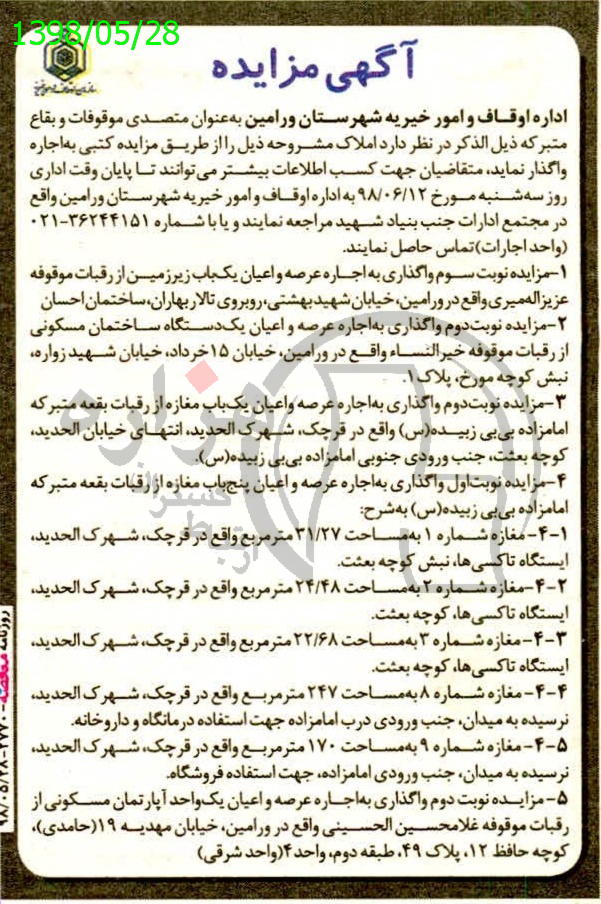 1398/05/28
آگهی مزایده
اداره اوقاف و امور خیریه شهرستان ورامین به‌عنوان متصدی موقوفات و بقاع
متبرکه ذیل الذکر در نظر دارد املاک مشروحه ذیل را از طریق مزایده کتبی به‌اجاره
واگذار نماید، متقاضیان جهت کسب اطلاعات بیشتر می‌توانند تا پایان وقت اداری
روز سه‌شنبه مورخ ۹۸/۰۶/۱۲ به اداره اوقاف و امور خیریه شهرستان ورامین واقع
در مجتمع ادارات جنب بنیاد شهید مراجعه نمایند و یا با شماره ۳۶۲۴۴۱۵۱-۰۲۱
(واحد اجارات) تماس حاصل نمایند.
۱-مزایده نوبت سوم واگذاری به اجاره عرصه و اعیان یک‌باب زیرزمین از رقبات موقوفه
عزیزاله‌میری واقع در ورامین، خیابان شهید بهشتی، روبروی تالار بهاران، ساختمان احسان
۲-مزایده نوبت‌دوم واگذاری به‌اجاره عرصه و اعیان یک‌دستگاه ساختمان مسکونی
از رقبات موقوفه خیرالنساء واقع در ورامین، خیابان ۱۵خرداد، خیابان شهید زواره،
نبش کوچه مورخ، پلاک ۱.
۳-مزایده نوبت‌دوم واگذاری به‌اجاره عرصه و اعیان یک‌باب مغازه از رقبات بقعه متبرکه
امامزاده بی‌بی زبیده(س) واقع در قرچک، شهرک الحدید، انتهای خیابان الحدید،
کوچه بعثت، جنب ورودی جنوبی امامزاده بی‌بی زبیده(س).
۴-مزایده نوبت‌اول واگذاری به‌اجاره عرصه و اعیان پنج‌باب مغازه از رقبات بقعه متبرکه
امامزاده بی‌بی زبیده(س) به‌شرح:
۴-۱- مغازه شماره ۱ به‌مساحت ۳۱/۲۷ مترمربع واقع در قرچک، شهرک الحدید،
ایستگاه تاکسی‌ها، نبش کوچه بعثت.
۴-۲- مغازه شماره ۲ به‌مساحت ۲۴/۴۸ مترمربع واقع در قرچک، شهرک الحدید،
ایستگاه تاکسی‌ها، کوچه بعثت.
۴-۳- مغازه شماره ۳ به‌مساحت ۲۲/۶۸ مترمربع واقع در قرچک، شهرک الحدید،
ایستگاه تاکسی‌ها، کوچه بعثت.
۴-۴- مغازه شماره ۸ به‌مساحت ۲۴۷ مترمربع واقع در قرچک، شهرک الحدید،
نرسیده به میدان، جنب ورودی درب امامزاده جهت استفاده درمانگاه و داروخانه.
۴-۵- مغازه شماره ۹ به‌مساحت ۱۷۰ مترمربع واقع در قرچک، شهرک الحدید،
نرسیده به میدان، جنب ورودی امامزاده، جهت استفاده فروشگاه.
۵- مزایده نوبت دوم واگذاری به‌اجاره عرصه و اعیان یک‌واحد آپارتمان مسکونی از
رقبات موقوفه غلامحسین الحسینی واقع در ورامین، خیابان مهدیه ۱۹(حامدی)،
کوچه حافظ ۱۲، پلاک ۴۹، طبقه دوم، واحد ۴(واحد شرقی)
هزاره